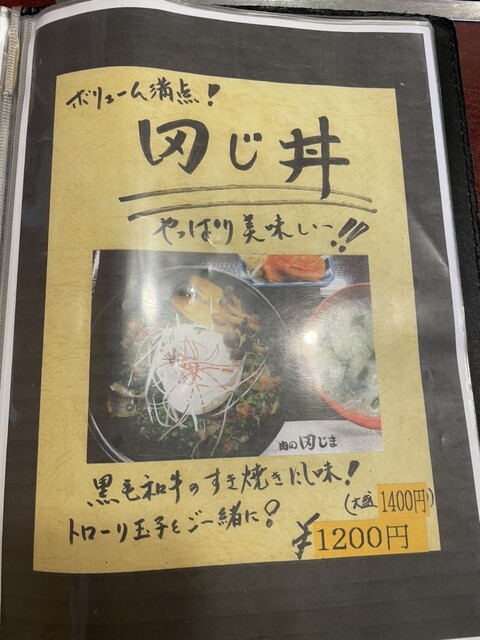 ボリューム満点!
田じ丼
やっぱり美味しい〜!!
肉の田じま
黒毛和牛のすき焼きだし味!
トローリ玉子をご一緒に♪
(大盛 1400円)
¥1200円